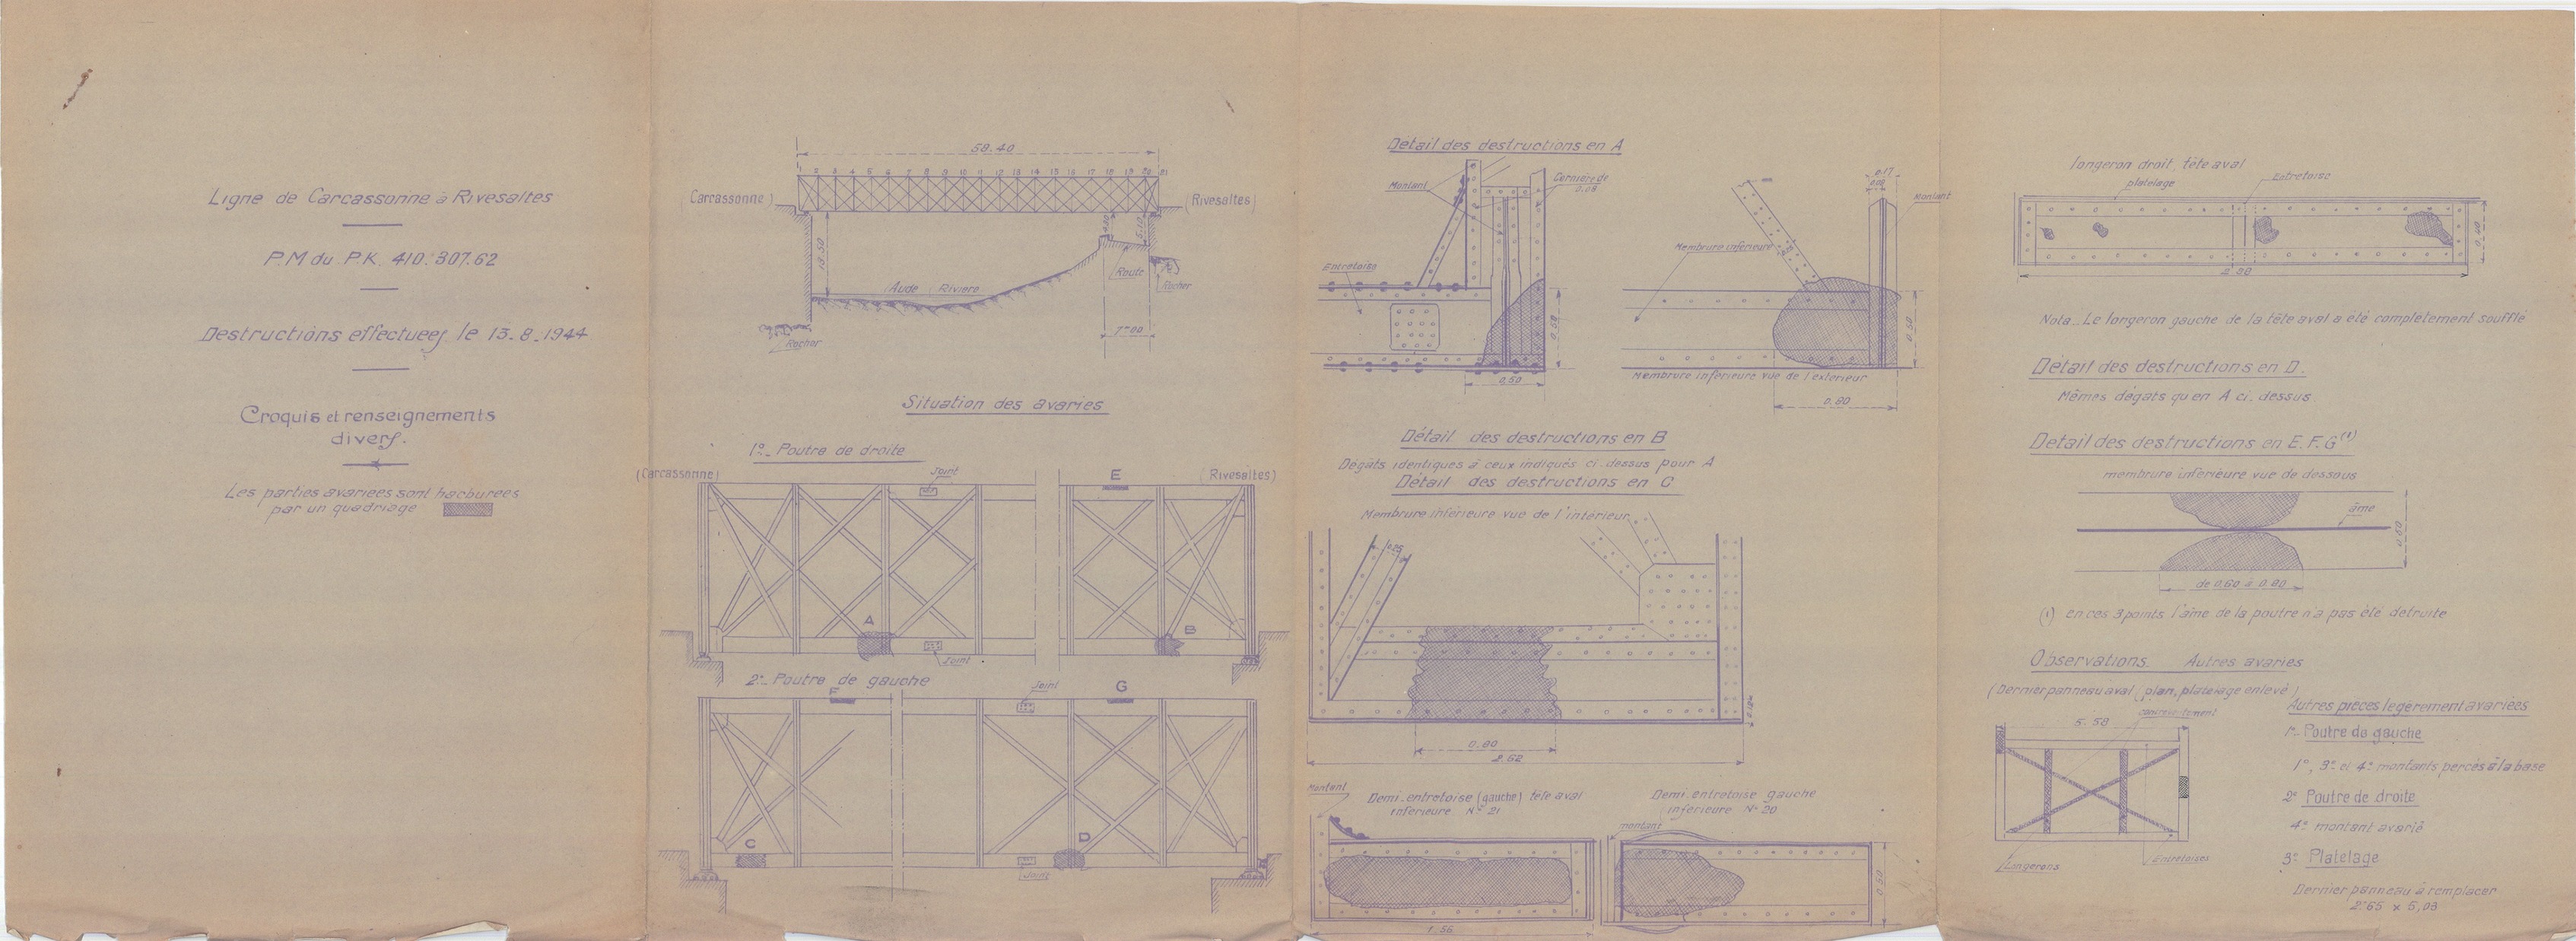 Ligne de Carcassonne à Rivesaltes
P.M du P.K. 410.307.62
Destructions effectuées le 13.8.1944
Croquis et renseignements
divers.
Les parties avariées sont hachurées
par un quadriage
58.40
1 2 3 4 5 6 7 8 9 10 11 12 13 14 15 16 17 18 19 20 21
(Carcassonne)
(Rivesaltes)
13.50
4.90
5.10
Aude Rivière
Route
Rocher
Rocher
7m00
Situation des avaries
1º_ Poutre de droite
(Carcassonne)
Joint
E
(Rivesaltes)
A
B
Joint
2º_ Poutre de gauche
F
Joint
G
C
D
Joint
Détail des destructions en A
Montant
Cornière de
0.08
Entretoise
0.50
0.50
0.17
Montant
Membrure inférieure
0.50
Membrure inférieure vue de l'extérieur
0.80
Détail des destructions en B
Dégâts identiques à ceux indiqués ci.dessus pour A
Détail des destructions en C
Membrure inférieure vue de l'intérieur
0.80
2.62
Montant
Demi.entretoise (gauche) tête aval
inférieure Nº 21
1.56
Demi.entretoise gauche
inférieure Nº 20
montant
0.50
longeron droit, tête aval
platelage
Entretoise
2.98
Nota_ Le longeron gauche de la tête aval a été complètement soufflé
Détail des destructions en D.
Mêmes dégâts qu'en A ci.dessus.
Detail des destructions en E.F.G (1)
membrure inférieure vue de dessous
âme
0.50
de 0.60 à 0.80
(1) en ces 3 points l'âme de la poutre n'a pas été détruite
Observations. Autres avaries
(Dernier panneau aval (plan, platelage enlevé)
contreventement
5.58
Longerons
Entretoises
Autres pièces légèrement avariées
1º_ Poutre de gauche
1º, 3º et 4º montants percés à la base
2º Poutre de droite
4º montant avarié
3º Platelage
Dernier panneau à remplacer
2.65 x 5,08